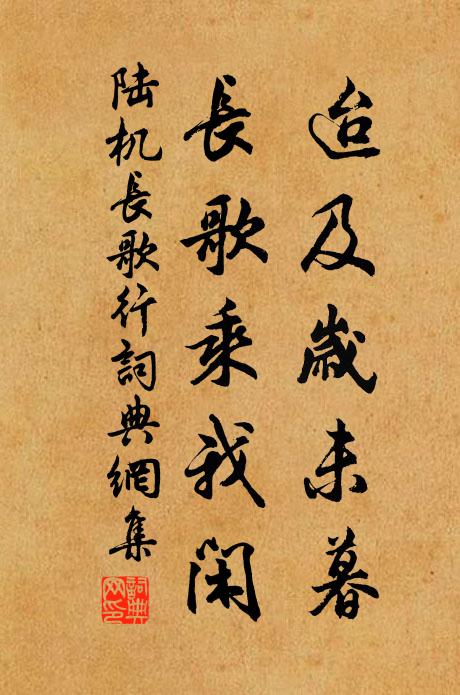 迨及歲未暮
長歌乘我閑
陆机長歌行詞典網集
詞典網印